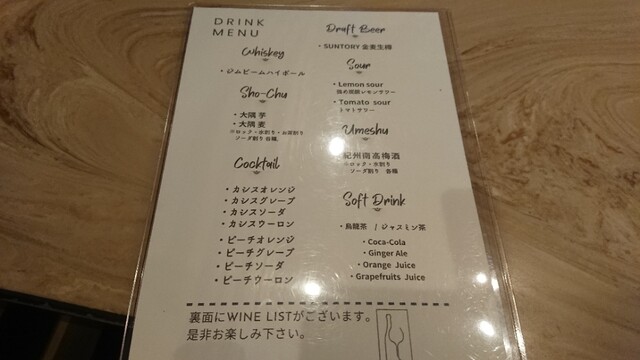 DRINK
MENU
Whiskey
・ジムビームハイボール
Sho-Chu
・大隅 芋
・大隅 麦
※ロック・水割り・お茶割り
ソーダ割り 各種
Cocktail
・カシスオレンジ
・カシスグレープ
・カシスソーダ
・カシスウーロン
・ピーチオレンジ
・ピーチグレープ
・ピーチソーダ
・ピーチウーロン
Draft Beer
・SUNTORY 金麦生樽
Sour
・Lemon sour
強め炭酸レモンサワー
・Tomato sour
トマトサワー
Umeshu
紀州南高梅酒
※ロック・水割り
ソーダ割り 各種
Soft Drink
・烏龍茶 / ジャスミン茶
・Coca-Cola
・Ginger Ale
・Orange Juice
・Grapefruits Juice
裏面にWINE LISTがございます。
是非お楽しみ下さい。